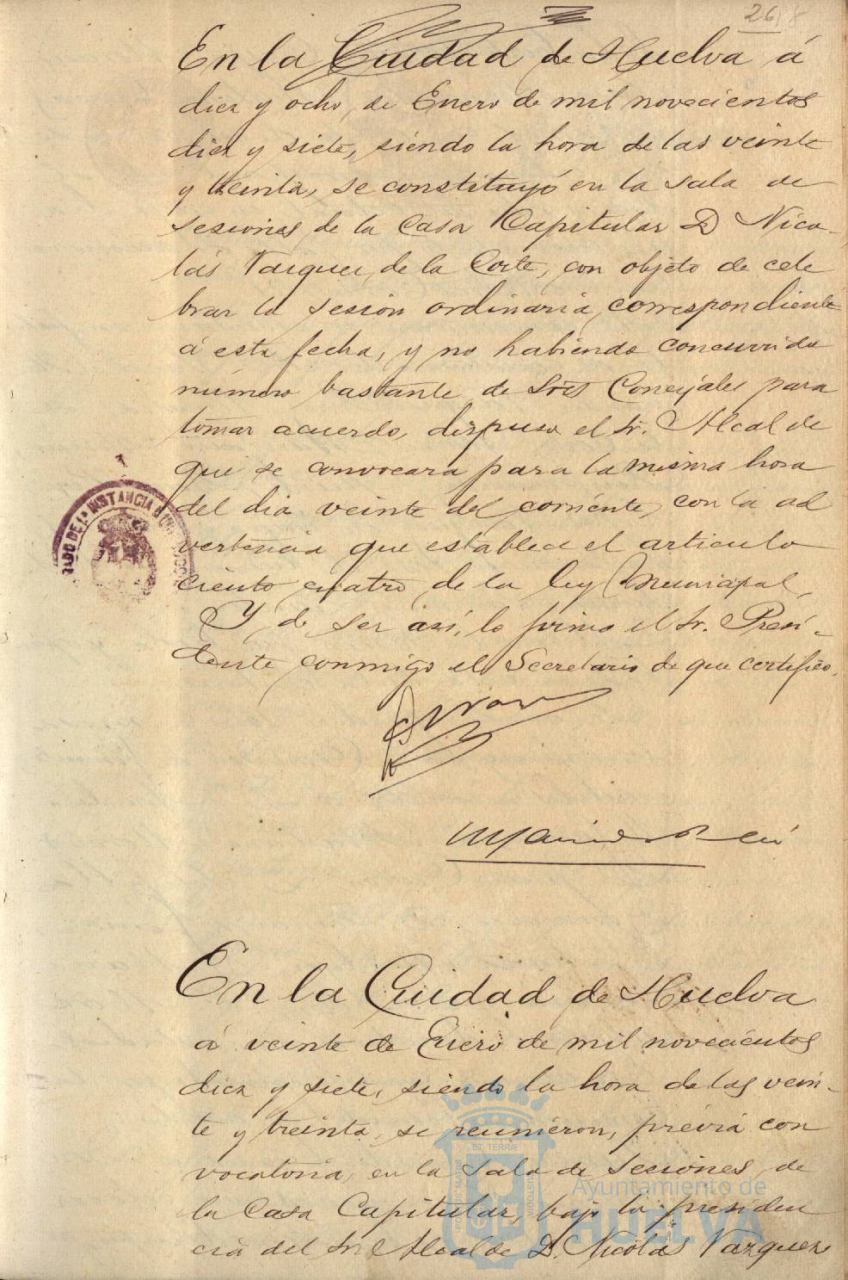 26
En la Ciudad de Huelva á
diez y ocho, de Enero de mil novecientos
diez y siete, siendo la hora de las veinte
y treinta, se constituyó en la sala de
sesiones de la Casa Capitular D Nico-
lás Vazquez de la Corte, con objeto de cele
brar la sesión ordinaria, correspondiente
á esta fecha, y no habiendo concurrido
número bastante de Sres Concejales para
tomar acuerdo, dispuso el Sr. Alcalde
que se convocara para la misma hora
del dia veinte del corriente, con la ad
vertencia que establece el artículo
ciento cuatro de la ley Municipal.
Y de ser así, lo firma el Sr. Presi-
dente conmigo el Secretario de que certifico.
JUZGADO DE 1ª INSTANCIA
En la Ciudad de Huelva
á veinte de Enero de mil novecientos
diez y siete, siendo la hora de las vein-
te y treinta, se reunieron, prévia con
vocatoria, en la Sala de Sesiones, de
la Casa Capitular, bajo la presiden
cia del Sr. Alcalde D. Nicolás Vazquez
Ayuntamiento de
HUELVA